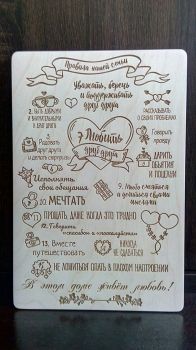 Правила нашей семьи
Уважать, беречь
и поддерживать
друг друга
2. БЫТЬ ДОБРЫМИ
И ВНИМАТЕЛЬНЫМИ
РАССКАЗЫВАТЬ
О СВОИХ ПРОБЛЕМАХ
Любить
друг друга
Говорить
правду
Радовать
друг друга
и делать сюрпризы
ДАРИТЬ
ОБЪЯТИЯ
И ПОЦЕЛУИ
Исполнять
свои обещания
9. Много смеяться
10. МЕЧТАТЬ
11. ПРОЩАТЬ, ДАЖЕ КОГДА ЭТО ТРУДНО
12. Говорить
«спасибо» и «пожалуйста»
13. Вместе
путешествовать
НИКОГДА
НЕ СДАВАТЬСЯ
НЕ ЛОЖИТЬСЯ СПАТЬ В ПЛОХОМ НАСТРОЕНИИ
В этом доме живёт любовь!